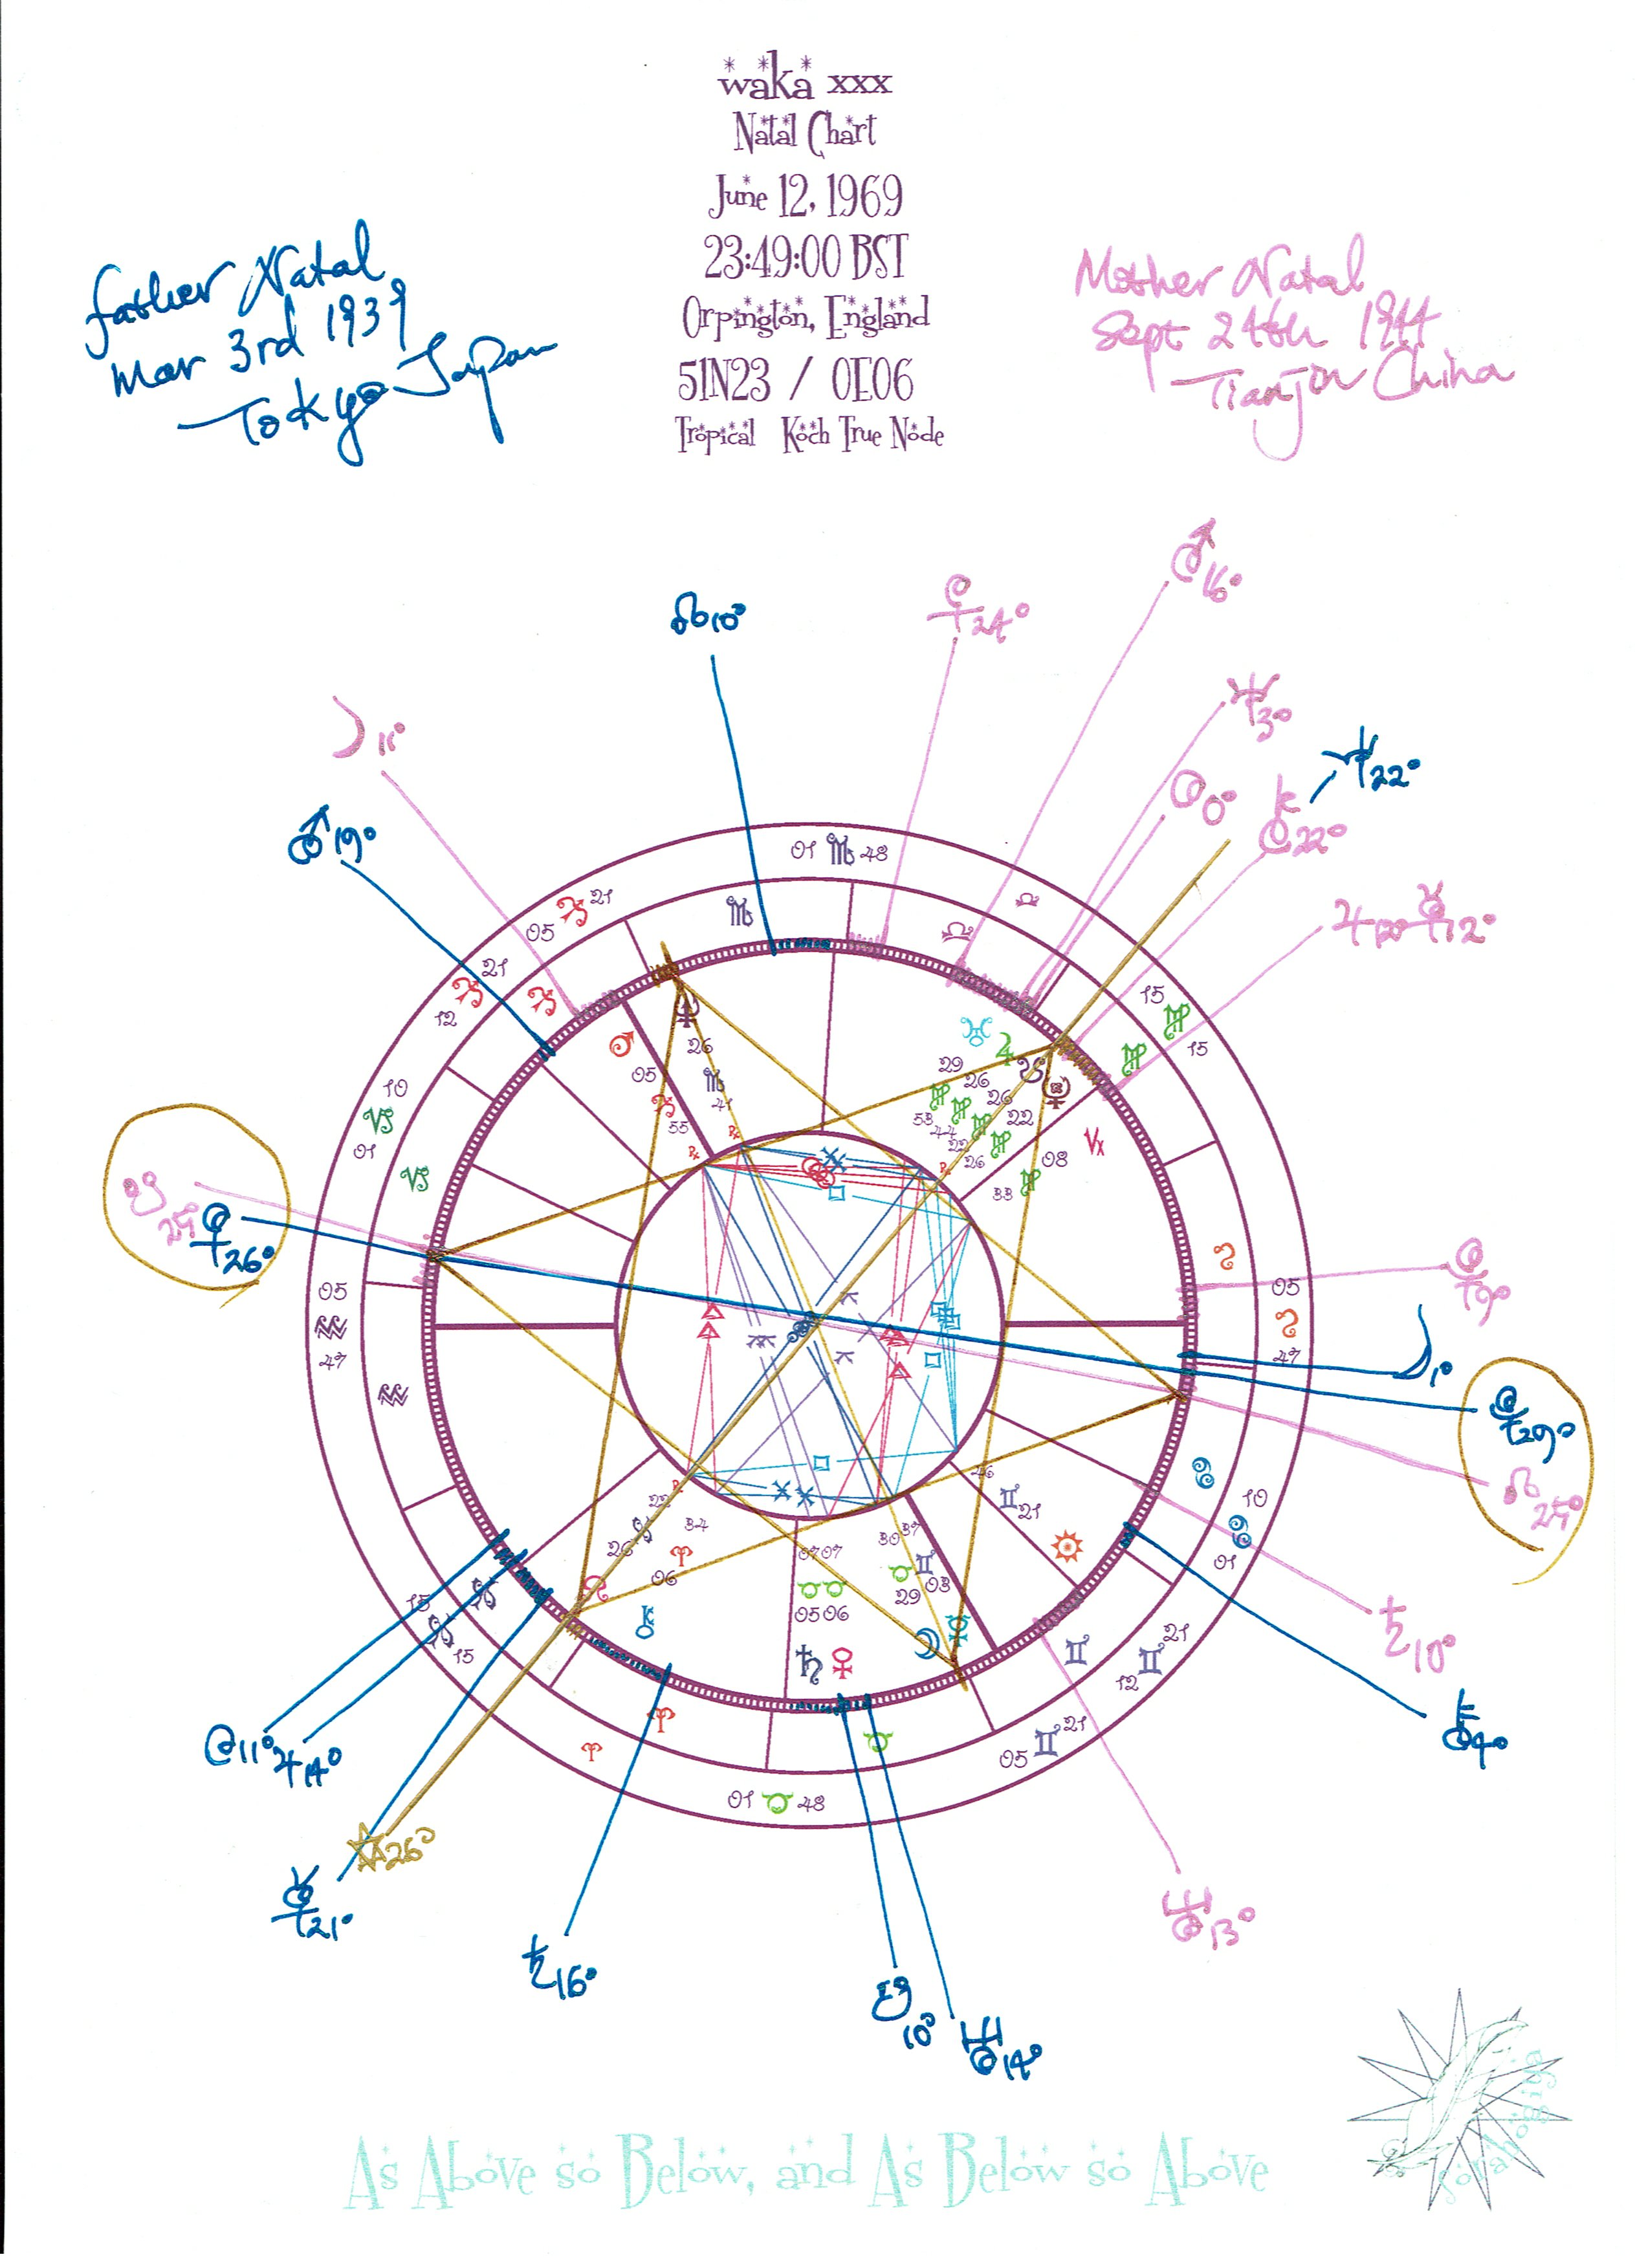 waka xxx
Natal Chart
June 12, 1969
23:49:00 BST
Orpington, England
51N23 / 0E06
Tropical Koch True Node
father Natal
Mar 3rd 1939
Tokyo Japan
Mother Natal
Sept 24th 1944
Tianjin China
☊10°
♀24°
♂16°
☽11°
♂19°
♆3°
0°
♆22°
⚷22°
♃12° ☿12°
01 ♏ 48
05 ♐ 21
12 ♐ 21
10 ♑ 01
05 ♒ 47
15 ♓ 15
01 ♉ 48
05 ♊ 21
12 ♊ 21
10 ♋ 01
05 ♌ 47
15 ♍ 15
♂ 05 ♐ 55 ℞
26 ♏ 41 ℞
♅ 29 ♍ 53
♃ 26 ♍ 44
☋ 26 ♍ 22 ℞
22 ♍ 26
Vx 08 ♍ 33
☊ 26 ♓ 22 ℞
⚷ 06 ♈ 34
♄ 05 ♉ 07
♀ 06 ♉ 07
☽ 29 ♉ 30
☿ 03 ♊ 37
☉ 21 ♊ 46
☋ 25°
26°
9°
☽1°
29°
☊ 25°
♄10°
⚷4°
♅13°
11° ♃14°
26°
☿21°
♄16°
☋10°
♅14°
As Above so Below, and As Below so Above